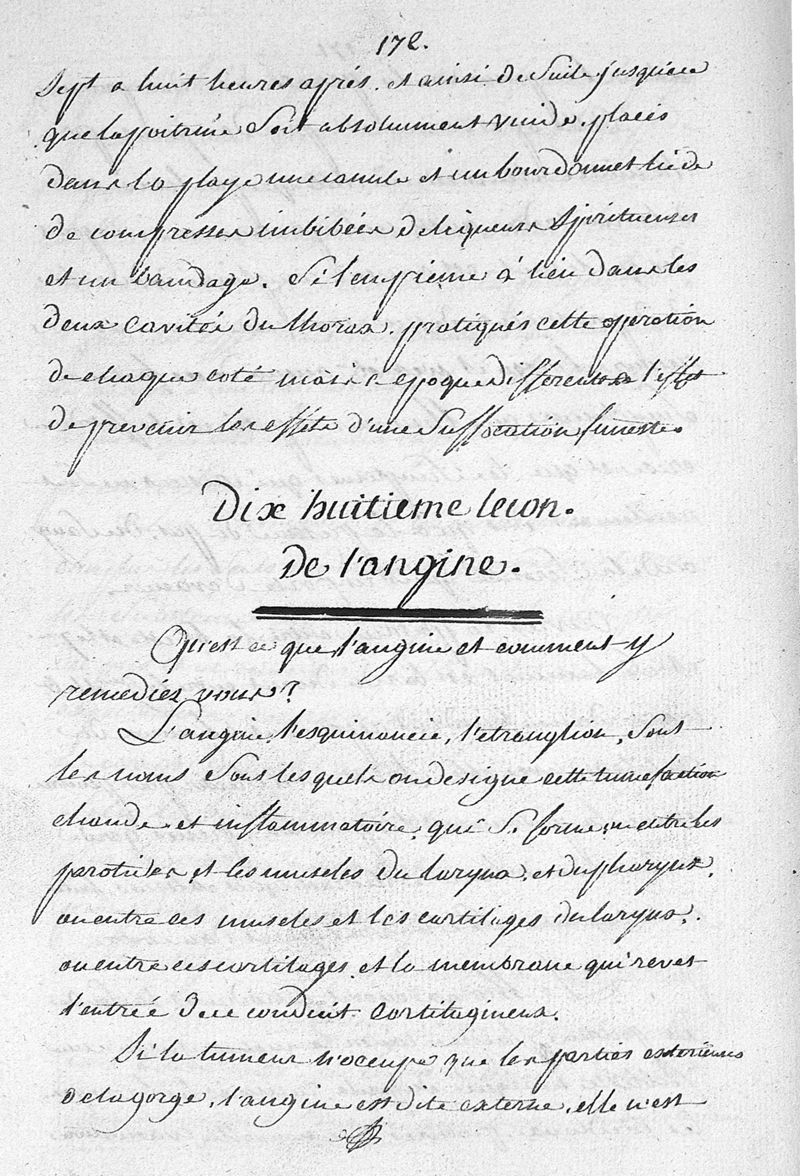 172.
Sept a huit heures aprés. et ainsi de Suite jusqu'a ce
que la poitrine Soit absolument vuide. placés
dans la playe une canule et un bourdonnet lié de
de compresses imbibées de liqueurs Spiritueuses
et un bandage. Si l'empieme à lieu dans les
deux cavités du thorax. pratiqués cette operation
de chaque coté mais a epoque differentes a l'effet
de prevenir les effets d'une Suffocation funeste.
Dix huitieme lecon.
De l'angine.
Qu'est ce que l'angine et comment y
remediez vous?
L'angine, l'esquinancie, l'etranglion, Sont
les noms Sous lesquels on designe cette tumefaction
chaude et inflammatoire, qui Se forme entre les
parotides et les muscles du larynx, et du pharynx,
ou entre ces muscles et les cartilages du larynx,
ou entre ces cartilages et la membrane qui revet
l'entrée de ce conduit Cartilagineux.
Si la tumeur n'occupe que les parties exterieures
de la gorge, l'angine est dite externe, elle n'est